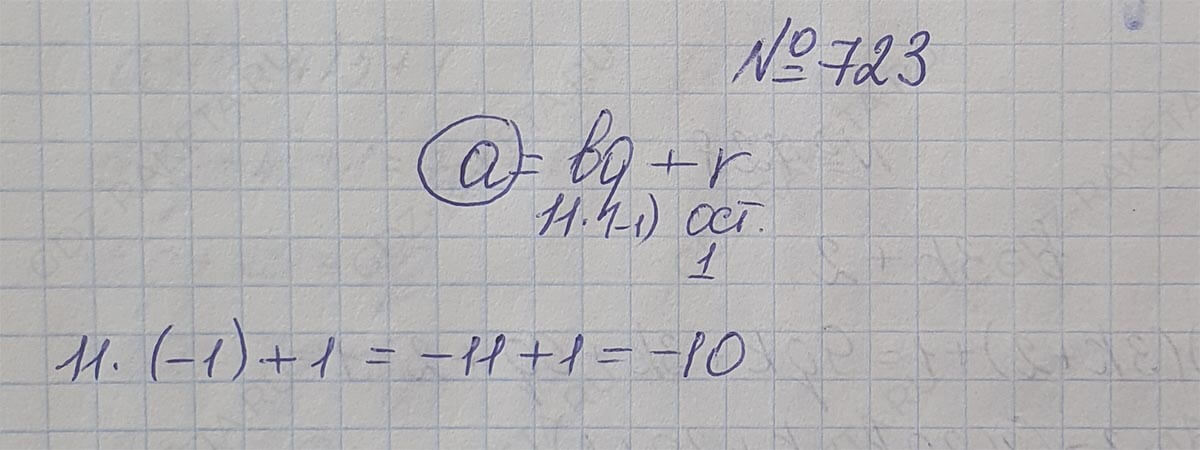 № 723
a = bq + r
11·(-1) ост.
1
11·(-1)+1 = -11+1 = -10